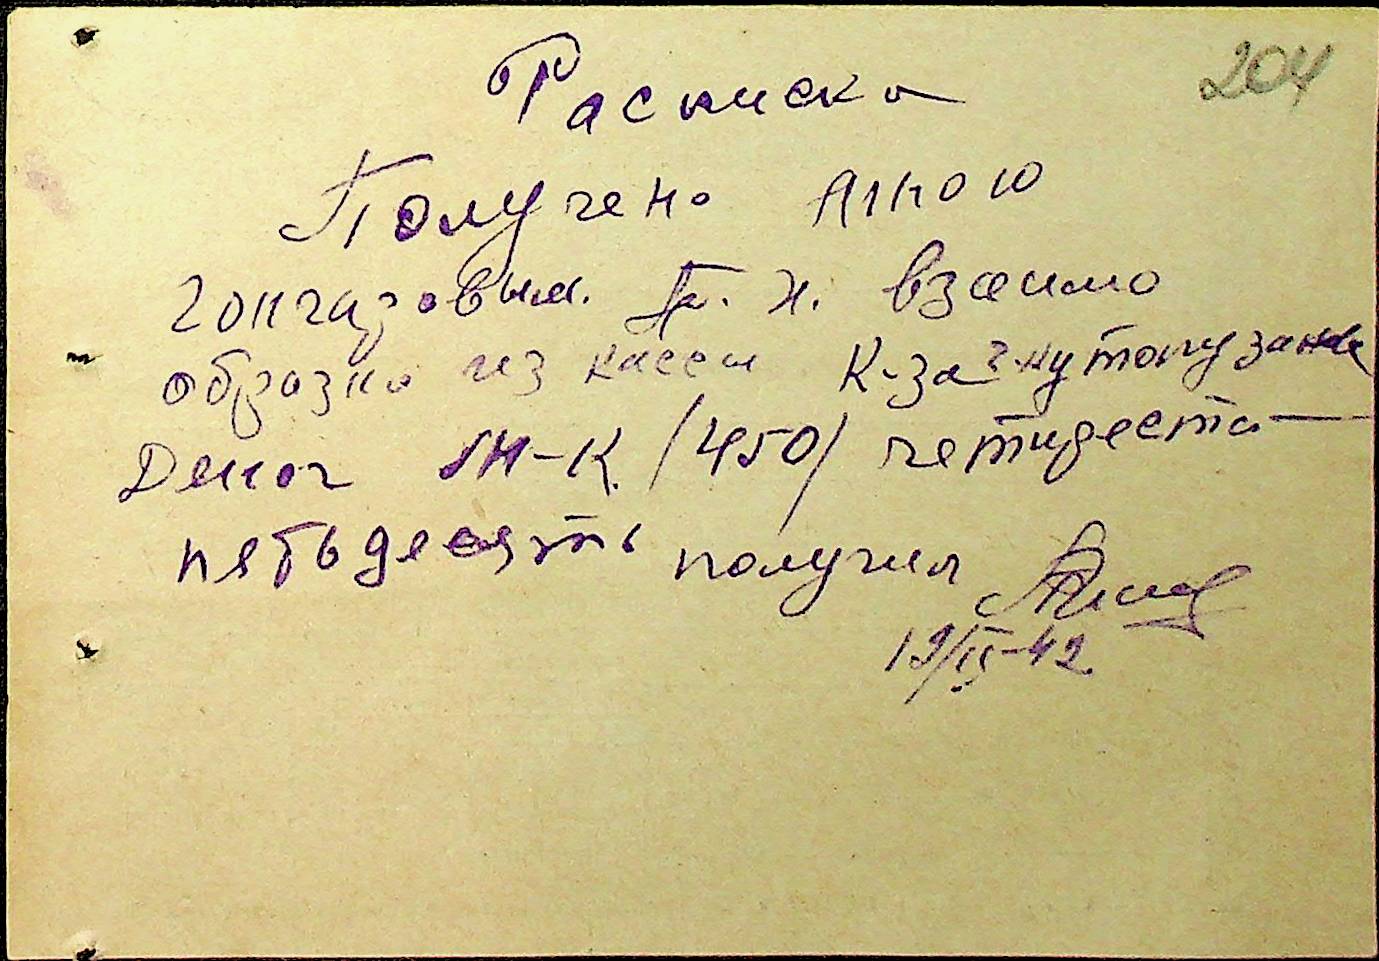 204
Расписка
Получено мною
Гончаровым. П. И. взаимо
образно из кассы К-за
Денег (450) четиреста
пятьдесять получил
19/II-42